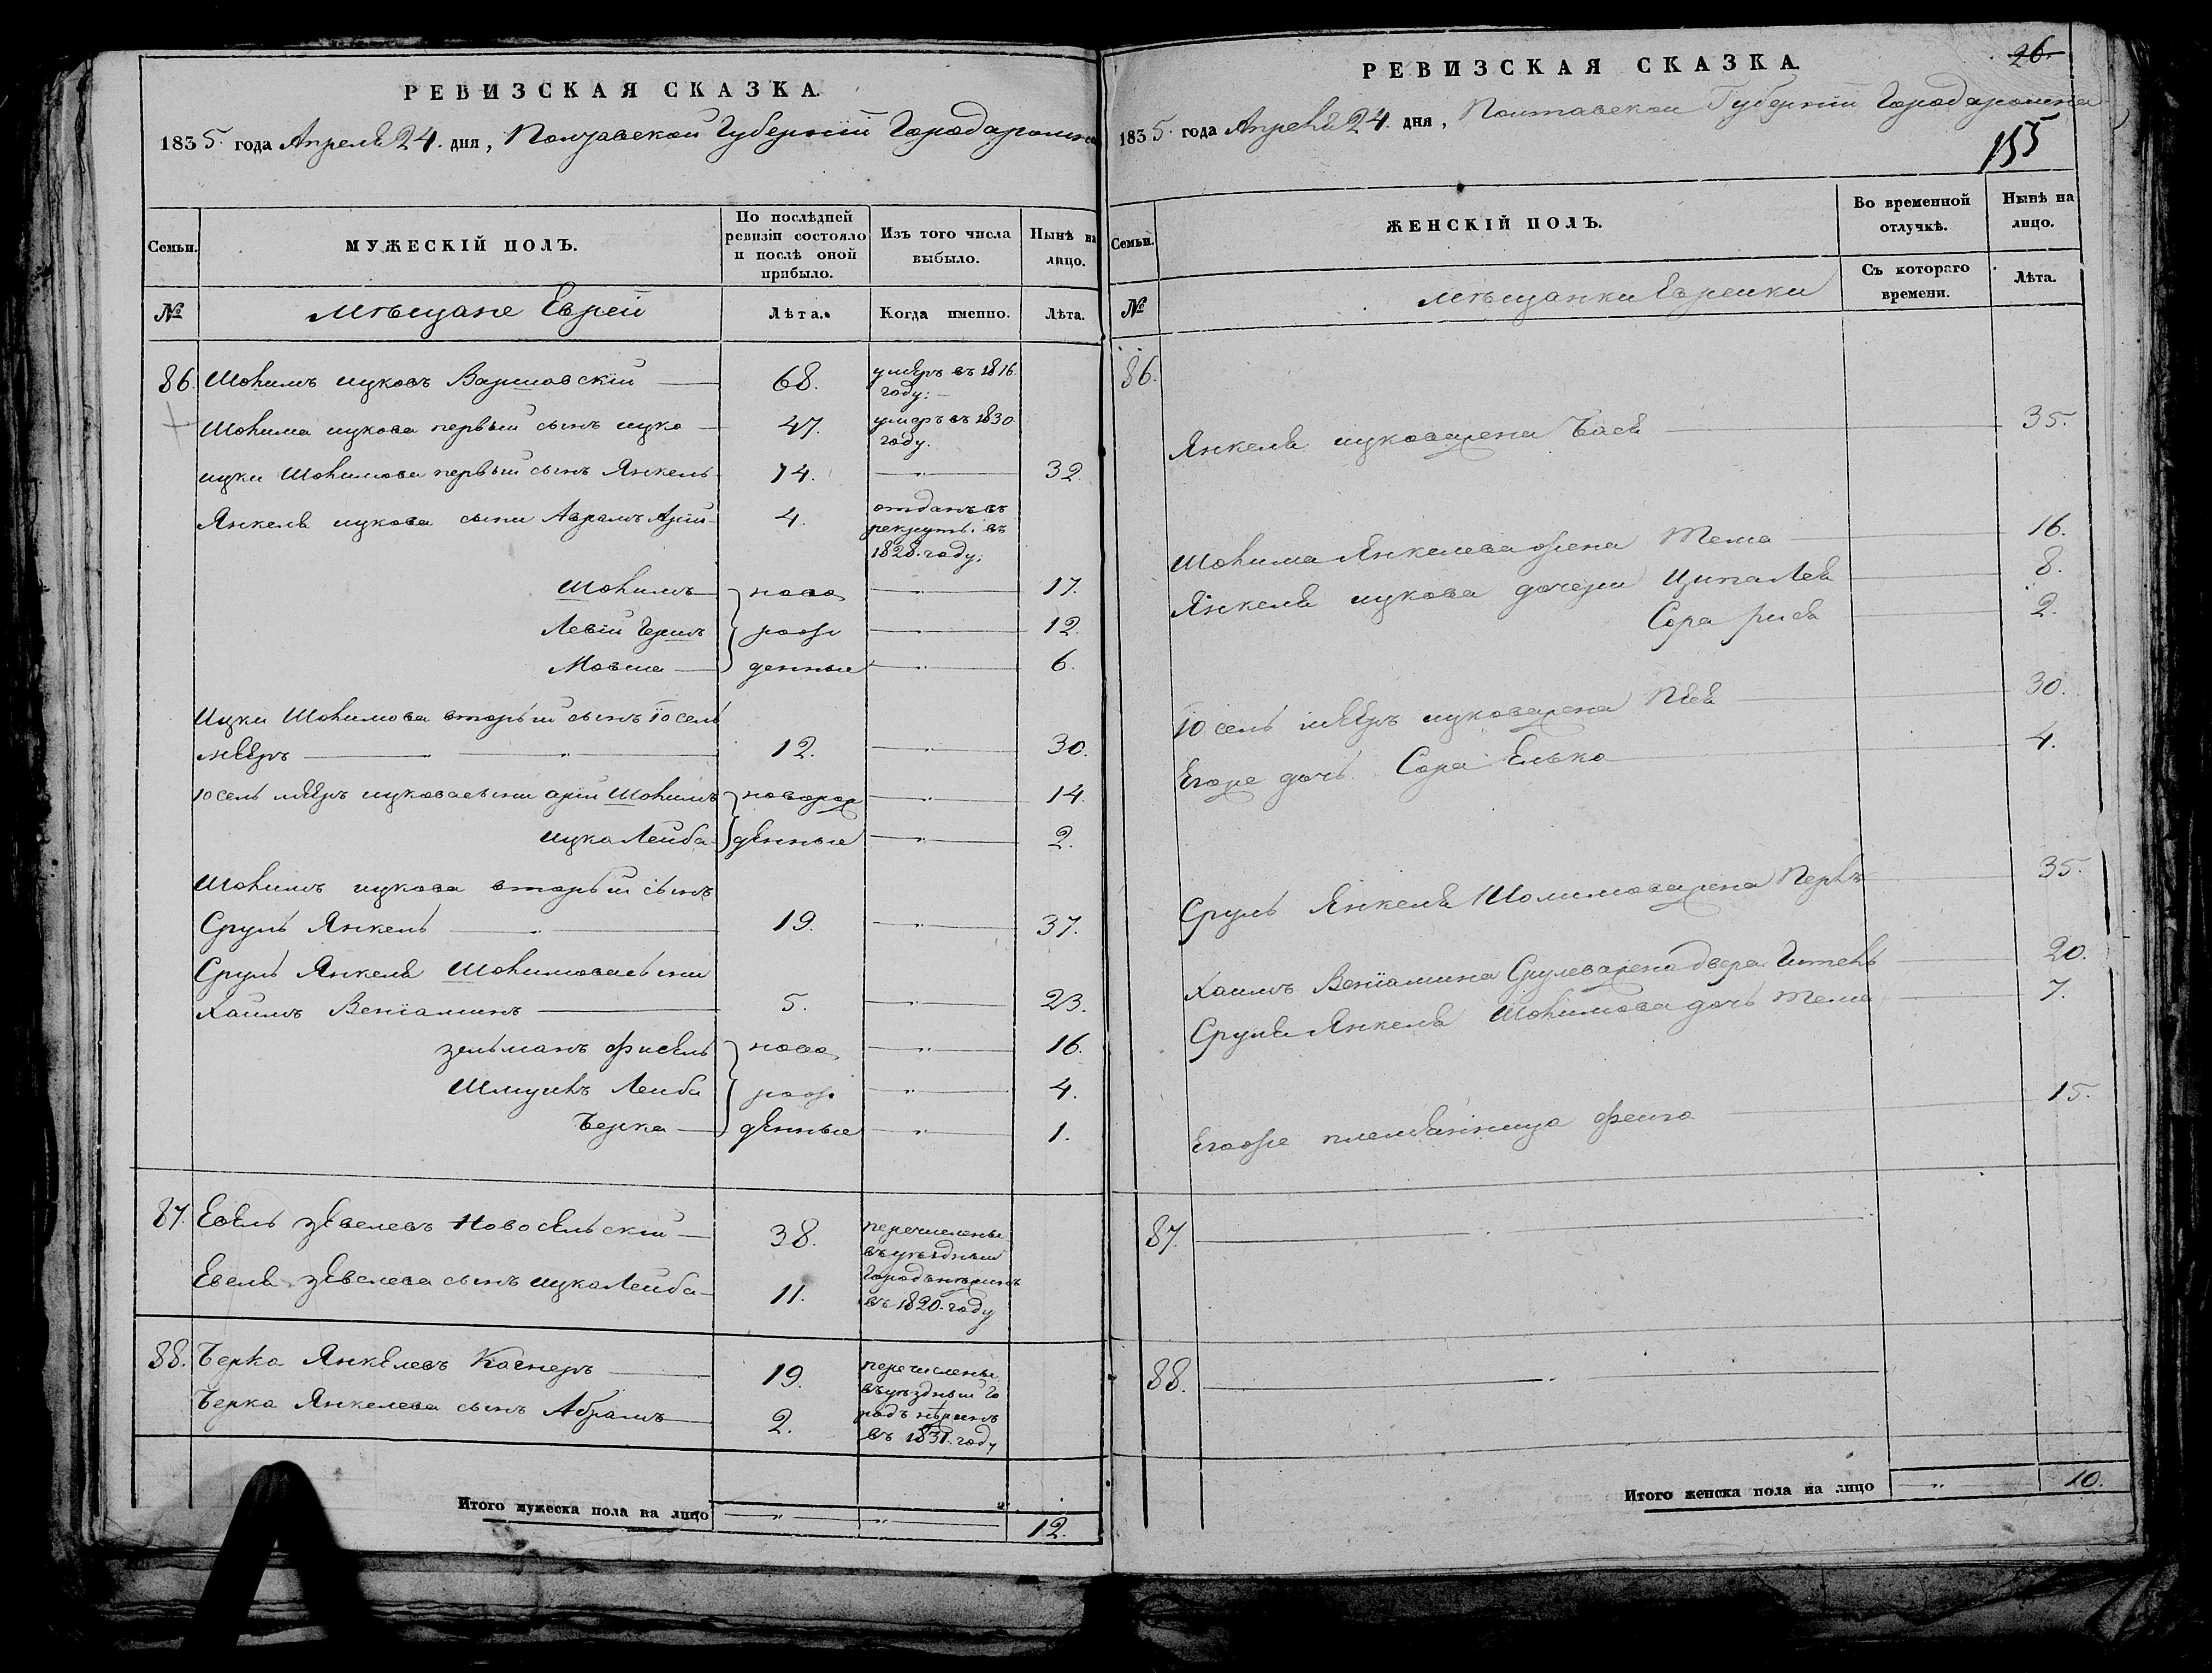 РЕВИЗСКАЯ СКАЗКА.
1835. года Апреля 24. дня, Полтавской Губернїи Города
Семьи.
МУЖЕСКІЙ ПОЛЪ.
По послѣдней ревизіи состояло и послѣ оной прибыло.
Изъ того числа выбыло.
Нынѣ на лицо.
№
Мѣщане Еврей
Лѣта.
Когда именно.
Лѣта.
86. Шолимъ ицковъ Варшавскїй 68. умеръ въ 1816 году.
Шолима ицкова первый сынъ ицко 47. умеръ въ 1830 году.
ицки Шолимова первый сынъ Янкель 14. 32
Янкеля ицкова сыни Аврамъ Арїй 4. отданъ въ рекруты въ 1828. году.
Шолимъ ново 17.
Левїй рож 12.
Мовша денные 6.
Ицки Шолимова вторый сынъ Іосель
мееръ 12. 30.
Іосель мееръ ицкова сыни арїй Шолимъ новорож 14
ицко Лейба денные 2.
Шолимъ ицкова вторый сынъ
Сруль Янкель 19. 37.
Сруль Янкеля Шолимова сыни
Хаимъ Венїаминъ 5. 23.
зельманъ фисель ново 16.
Шмуйлъ Лейба рож 4.
Берка денные 1.
87. Евель зевелевъ Новосельскїй 38. перечислены въ уѣздный
Евеля зевелева сынъ ицко Лейба 11. Городъ въ 1820. году
88. Берка Янкелевъ 19. перечислены въ уѣздный го
Берка Янкелева сынъ Абрамъ 2. родъ въ 1831. году
Итого мужеска пола на лицо 12.
26.
РЕВИЗСКАЯ СКАЗКА.
1835. года Апреля 24. дня, Полтавской Губернїи Города
155
Семьи.
ЖЕНСКІЙ ПОЛЪ.
Во временной отлучкѣ.
Нынѣ на лицо.
№
Мѣщанки Еврейки
Съ котораго времени.
Лѣта.
86.
Янкеля ицкова жена Бася 35.
Шолима Янкелева жена Тема 16.
Янкеля ицкова дочери Ципа Лея 8.
Сора 2.
Іосель мееръ ицкова жена 30.
Егоже дочь Сора Елько 4.
Сруль Янкеля Шолимова жена 35.
Хаимъ Венїамина Срулева жена двера 20.
Сруля Янкеля Шолимова дочь Тема 7.
Егоже племянница фейга 15.
87.
88.
Итого женска пола на лицо 10.